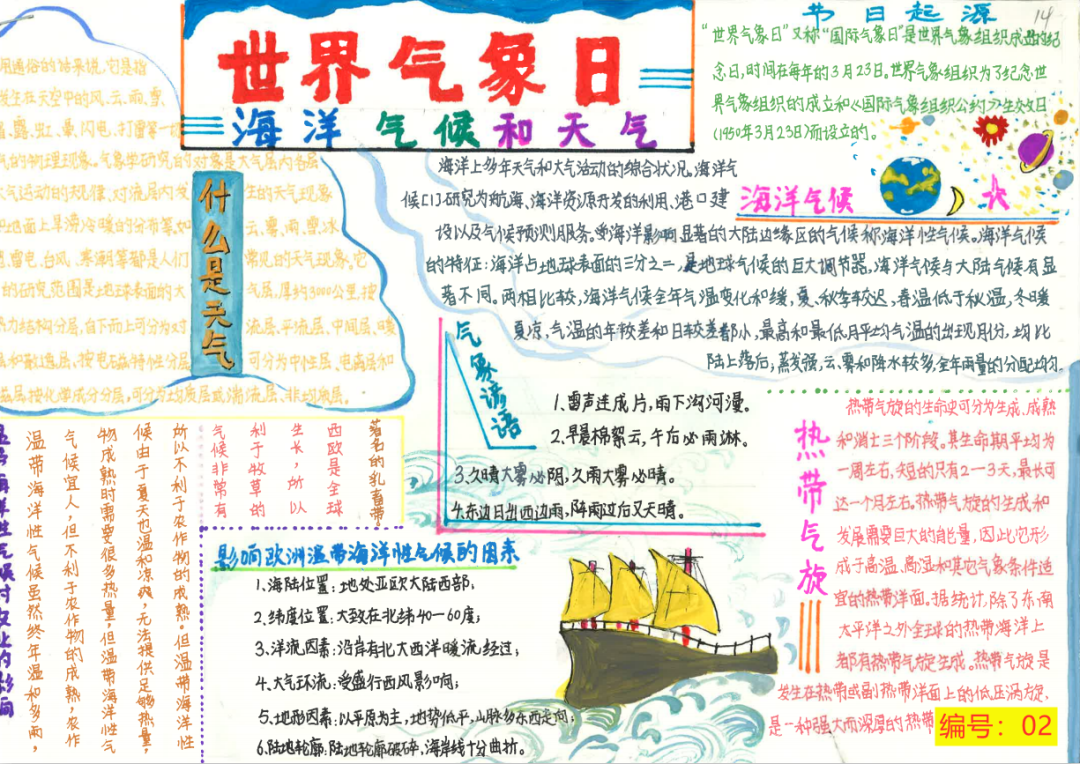 世界气象日
海洋 气候和天气
节日起源
14
“世界气象日”又称“国际气象日”是世界气象组织成立的纪
念日,时间在每年的3月23日。世界气象组织为了纪念世
界气象组织的成立和《国际气象组织公约》生效日
(1950年3月23日)而设立的。
什么是天气
用通俗的话来说,它是指
发生在天空中的风、云、雨、雪、
霜、露、虹、晕、闪电、打雷等一切
气的物理现象。气象学研究的对象是大气层内各层
大气运动的规律、对流层内发 生的天气现象
和地面上旱涝冷暖的分布等,如 云、雾、雨、雪、冰
雹、雷电、台风、寒潮等都是人们 常见的天气现象。它
的研究范围是地球表面的大 气层,厚约3000公里,按
热力结构分层,自下而上可分为对 流层、平流层、中间层、暖
层和散逸层、按电磁特性分层 可分为中性层、电离层和
磁层、按化学成分分层,可分为均质层或湍流层、非均质层。
海洋气候
海洋上多年天气和大气活动的综合状况。海洋气
候[1]研究为航海、海洋资源开发的利用、港口建
设以及气候预测服务。受海洋影响显著的大陆边缘区的气候称海洋性气候。海洋气候
的特征:海洋占地球表面的三分之二,是地球气候的巨大调节器,海洋气候与大陆气候有显
著不同。两相比较,海洋气候全年气温变化和缓,夏、秋季较迟,春温低于秋温,冬暖
夏凉,气温的年较差和日较差都小,最高和最低月平均气温的出现月份,均比
陆上落后,蒸发强,云、雾和降水较多,全年雨量的分配均匀.
气象谚语
1.雷声连成片,雨下沟河漫。
2.早晨棉絮云,午后必雨淋。
3.久晴大雾必阴,久雨大雾必晴。
4.东边日出西边雨,阵雨过后又天晴。
热带气旋
热带气旋的生命史可分为生成、成熟
和消亡三个阶段。其生命期平均为
一周左右,短的只有2-3天,最长可
达一个月左右。热带气旋的生成和
发展需要巨大的能量,因此它形
成于高温、高湿和其它气象条件适
宜的热带洋面。据统计,除了东南
太平洋之外全球的热带海洋上
都有热带气旋生成。热带气旋是
发生在热带或副热带洋面上的低压涡旋,
是一种强大而深厚的热带
温带海洋性气候对农业的影响
温带海洋性气候虽然终年温和多雨,
气候宜人,但不利于农作物的成熟,农作
物成熟时需要很多热量,但温带海洋性气
候由于夏天也温和凉爽,无法提供足够热量,
所以不利于农作物的成熟。但温带海洋性
气候非常有
利于牧草的
生长,所以
西欧是全球
著名的乳畜带
影响欧洲温带海洋性气候的因素
1.海陆位置:地处亚欧大陆西部;
2.纬度位置:大致在北纬40-60度;
3.洋流因素:沿岸有北大西洋暖流经过;
4.大气环流:受盛行西风影响;
5.地形因素:以平原为主,地势低平,山脉多东西走向;
6.陆地轮廓:陆地轮廓破碎,海岸线十分曲折。
编号:02